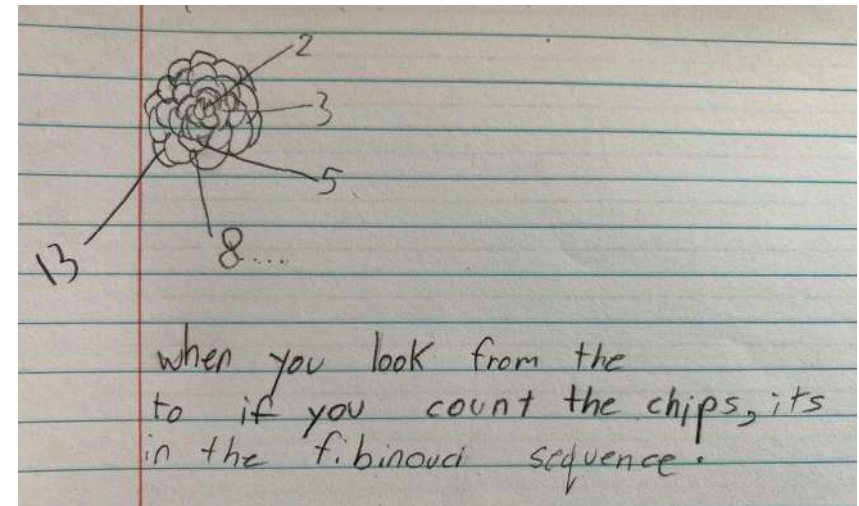 2
3
5
8....
13
when you look from the
to if you count the chips, its
in the fibinouci sequence.